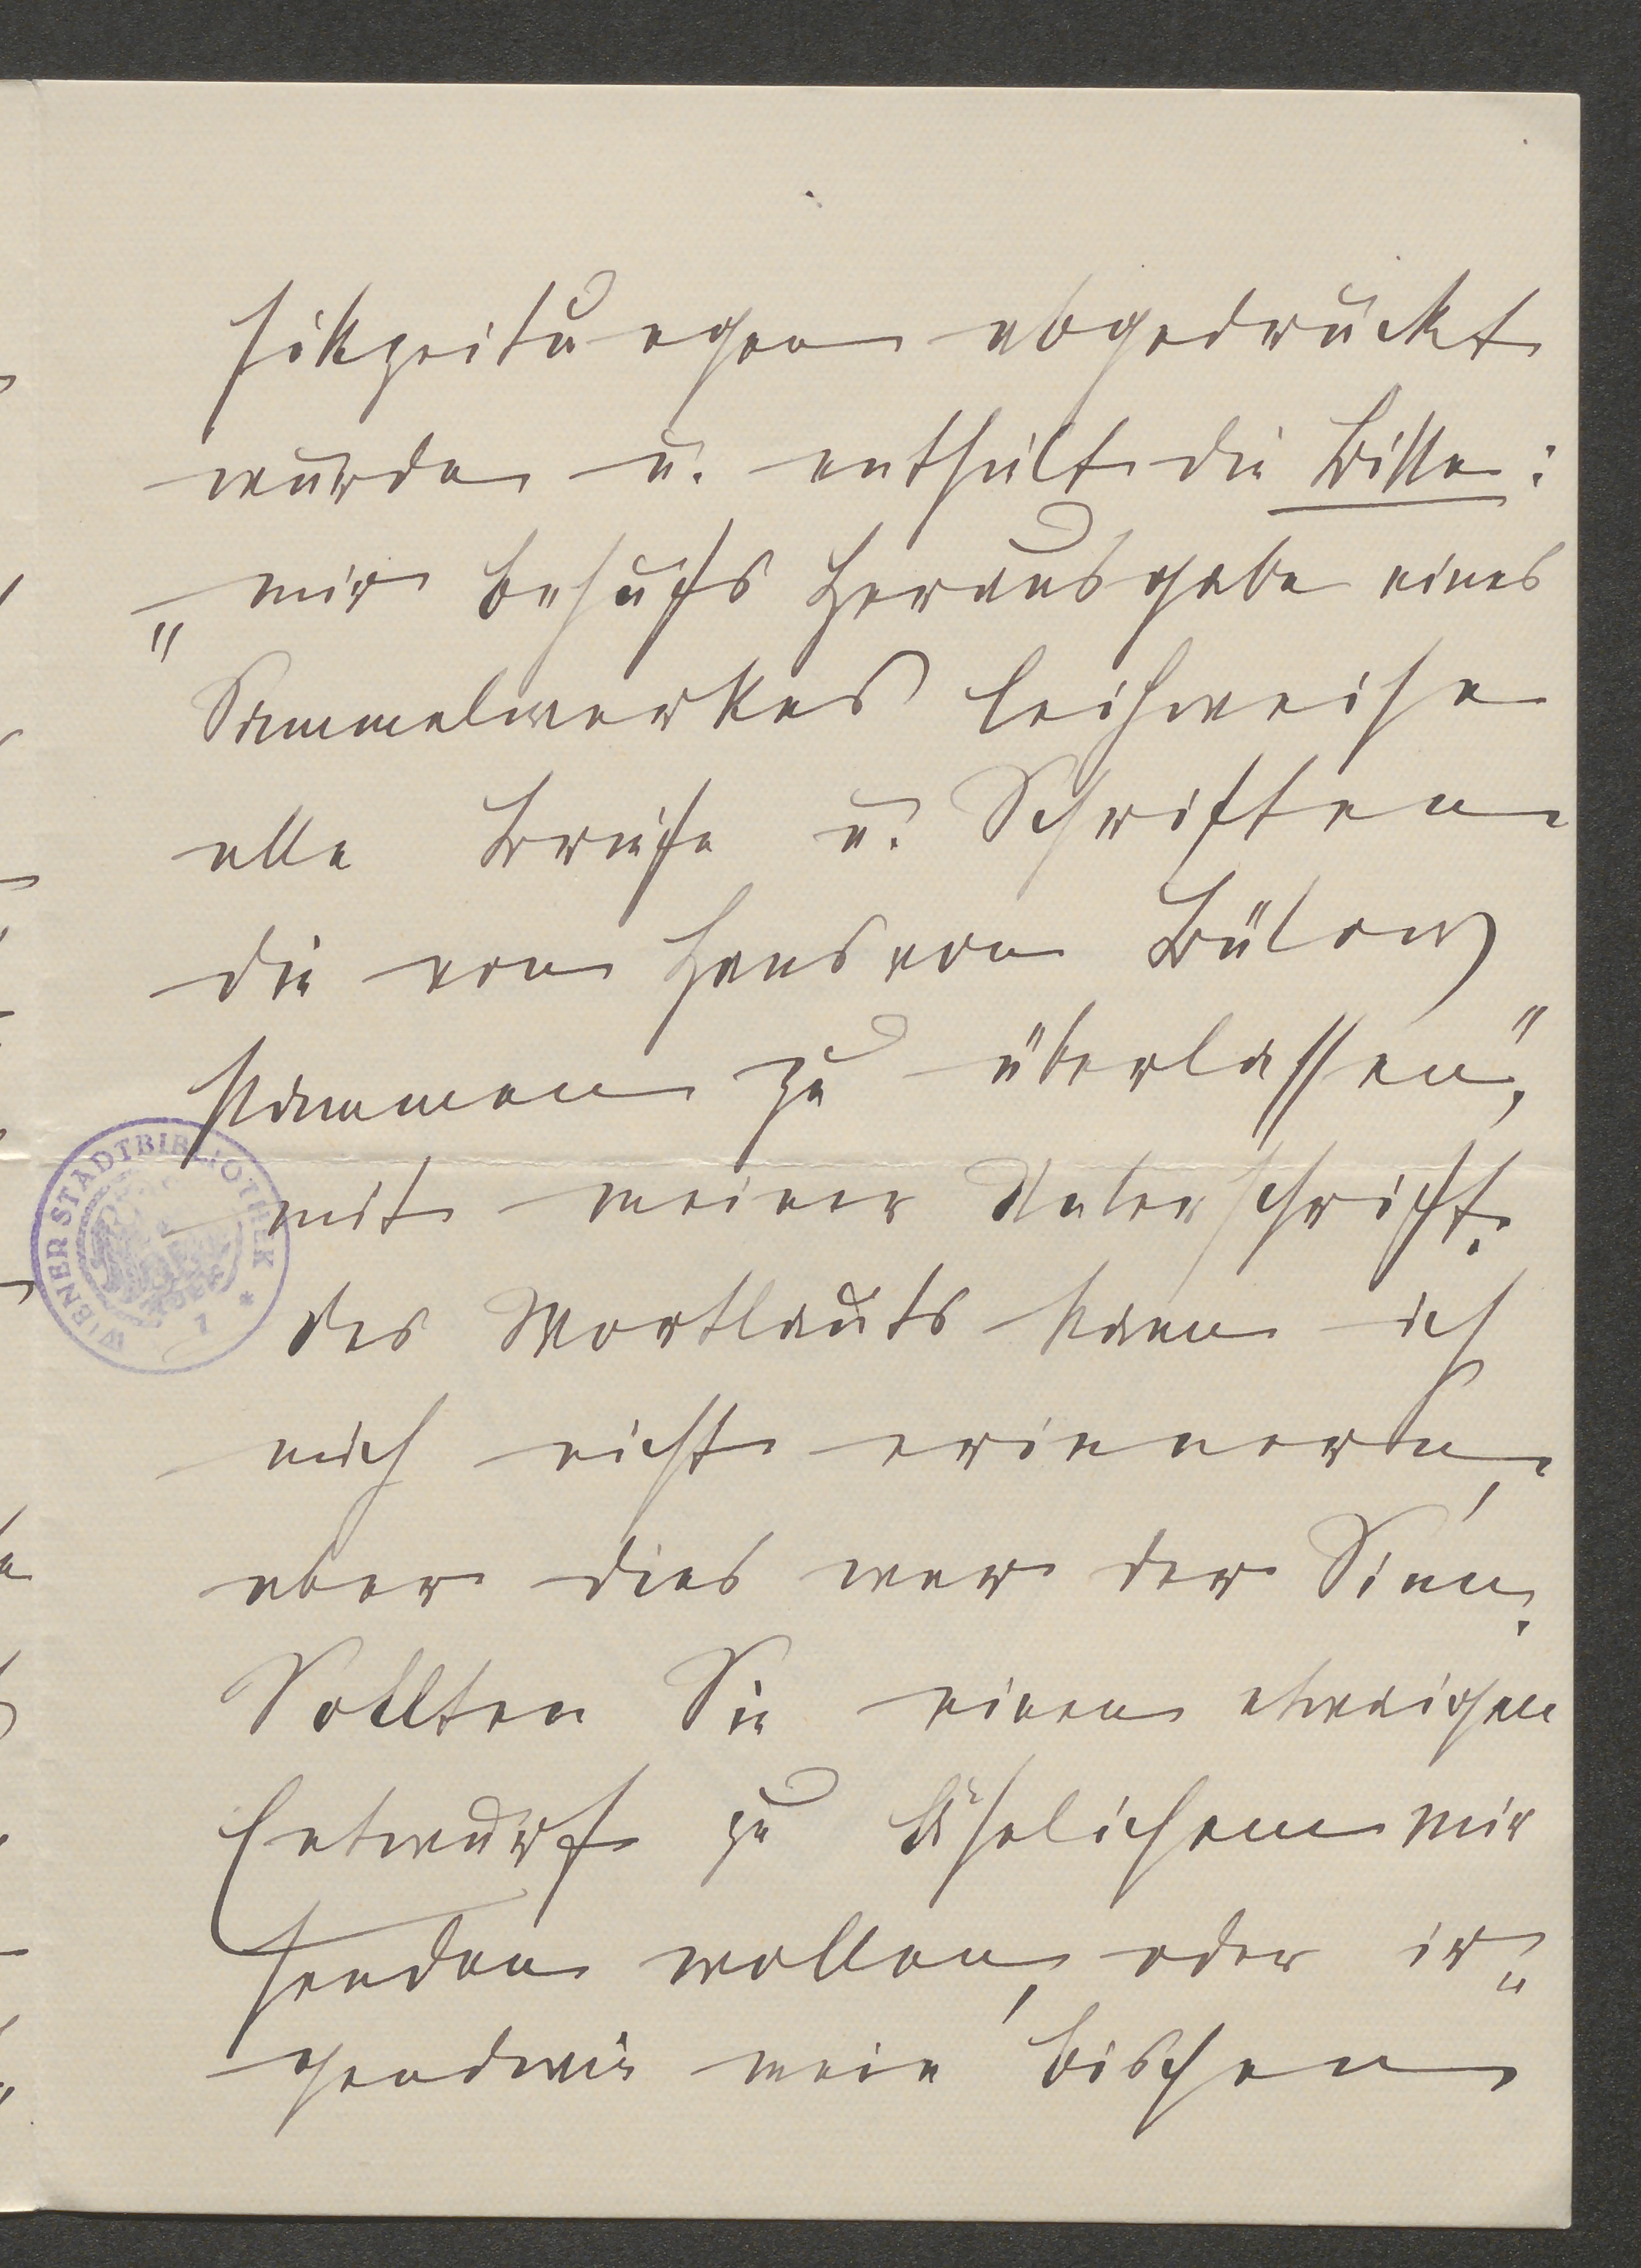 sikzeitungen abgedruckt
wurde u. enthielt die Bitte:
„mir behufs Herausgabe eines
Sammelwerkes leihweise
alle Briefe u. Schriften
die von Hans von Bülow
stammen zu überlassen",
mit meiner Unterschrift.
des Wortlauts kann ich
mich nicht erinnern,
aber dies war der Sinn.
Sollten Sie einen etwaigen
Entwurf zu Ähnlichem mir
senden wollen, oder ir„
gendwie mein bischen
WIENER STADTBIBLIOTHEK